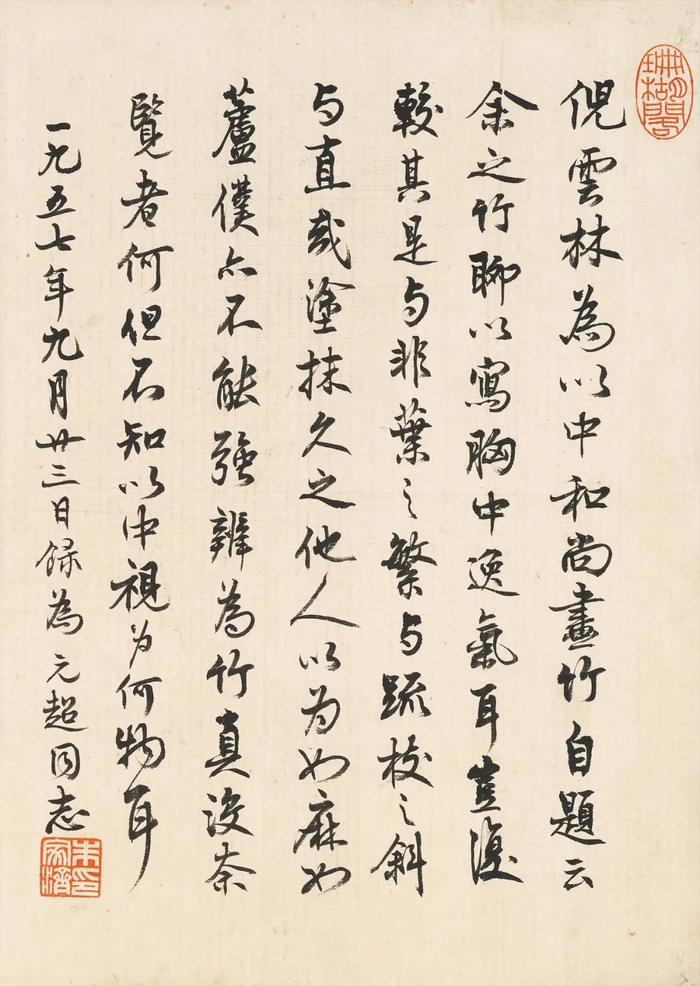 倪雲林為以中和尚畫竹自題云
余之竹聊以寫胸中逸氣耳豈復
較其是与非葉之繁与疏枝之斜
与直或塗抹久之他人以为如麻如
蘆僕亦不能强辨為竹真没奈
覽者何但不知以中視为何物耳
一九五七年九月廿三日録為元超同志
朱家濟印